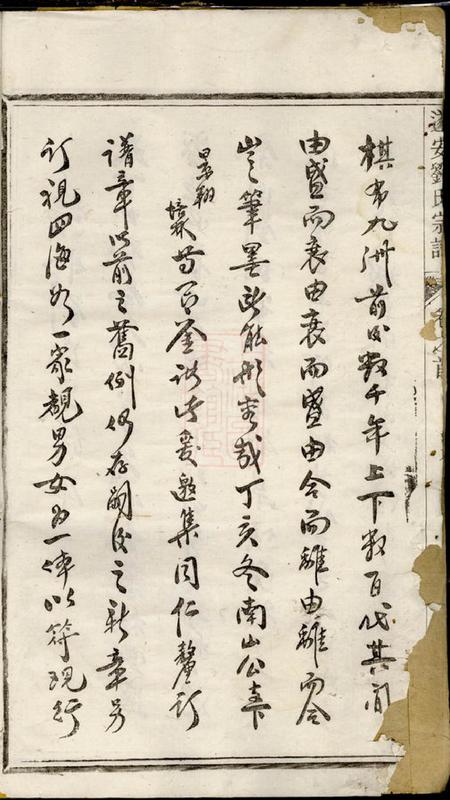 遂安劉氏宗譜 卷之首
棋布九州前後數千年上下數百代其間
由盛而衰由衰而盛由合而離由離而合
豈筆墨所能形容哉丁亥冬南山公喜下
景翔
等 此爰邀集同仁釐訂
譜章以前之舊例仍存嗣後之新章另
訂視四海如一家親男女為一体以符現行